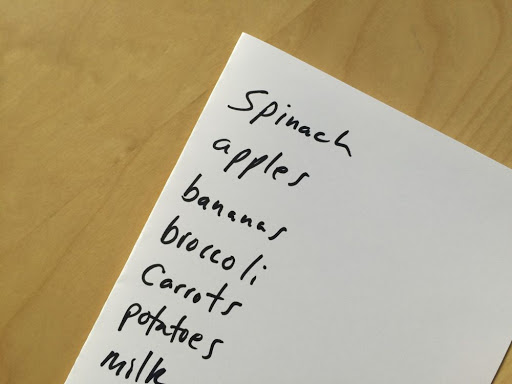 Spinach
apples
bananas
broccoli
Carrots
potatoes
milk